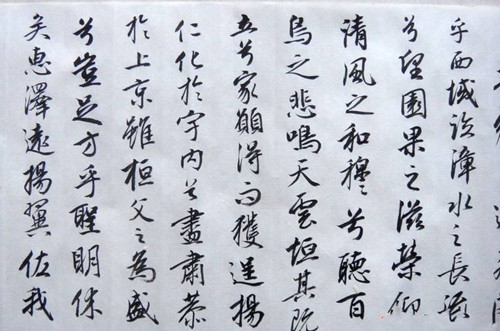 乎西城臨漳水之長流
兮望園果之滋榮仰
清風之和穆兮聽百
鳥之悲鳴天雲垣其既
立兮家願得而獲逞揚
仁化於宇內兮盡肅恭
於上京雖桓文之為盛
兮豈足方乎聖明休
矣惠澤遠揚翼佐我